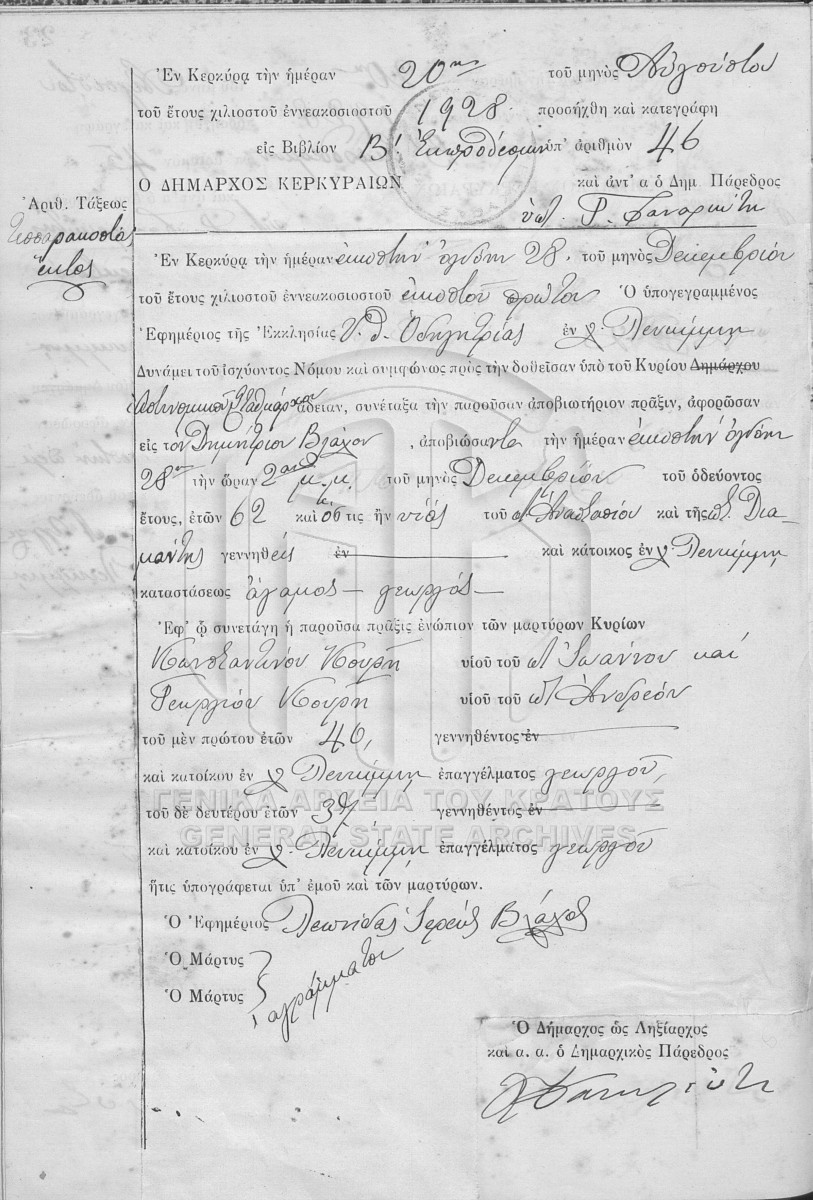 Ἐν Κερκύρᾳ τὴν ἡμέραν 20ην τοῦ μηνὸς Αὐγούστου
τοῦ ἔτους χιλιοστοῦ ἐννεακοσιοστοῦ 1928 προσήχθη καὶ κατεγράφη
εἰς Βιβλίον Β! Ἐκπροθέσμων ὑπ' ἀριθμὸν 46
Ο ΔΗΜΑΡΧΟΣ ΚΕΡΚΥΡΑΙΩΝ καὶ ἀντ' α ὁ Δημ. Πάρεδρος
Ἀριθ. Τάξεως
Τεσσαρακοστὸς
ἕκτος
Ἐν Κερκύρᾳ τὴν ἡμέραν εἰκοστὴν ὀγδόην 28. τοῦ μηνὸς Δεκεμβρίου
τοῦ ἔτους χιλιοστοῦ ἐννεακοσιοστοῦ εἰκοστοῦ πρώτου Ὁ ὑπογεγραμμένος
Ἐφημέριος τῆς Ἐκκλησίας Υ. Θ. Ὁδηγητρίας ἐν
Δυνάμει τοῦ ἰσχύοντος Νόμου καὶ συμφώνως πρὸς τὴν δοθεῖσαν ὑπὸ τοῦ Κυρίου Δημάρχου
Ἀστυνομικοῦ Σταθμάρχου ἄδειαν, συνέταξα τὴν παροῦσαν ἀποβιωτήριον πρᾶξιν, ἀφορῶσαν
εἰς τὸν Δημήτριον Βλάχον, ἀποβιώσαντα τὴν ἡμέραν εἰκοστὴν ὀγδόην
28ην τὴν ὥραν 2αν μ.μ. τοῦ μηνὸς Δεκεμβρίου τοῦ ὁδεύοντος
ἔτους, ἐτῶν 62 καὶ ὅστις ἦν υἱὸς τοῦ π. Ἀναστασίου καὶ τῆς π. Δια-
μάντης γεννηθεὶς ἐν καὶ κάτοικος ἐν
καταστάσεως ἄγαμος - γεωργός -
Ἐφ' ᾧ συνετάγη ἡ παροῦσα πρᾶξις ἐνώπιον τῶν μαρτύρων Κυρίων
Κωνσταντίνου Κουρῆ υἱοῦ τοῦ π. Ἰωάννου καὶ
Γεωργίου Κουρῆ υἱοῦ τοῦ π. Ἀνδρέου
τοῦ μὲν πρώτου ἐτῶν 46, γεννηθέντος ἐν
καὶ κατοίκου ἐν ἐπαγγέλματος γεωργοῦ,
ΓΕΝΙΚΑ ΑΡΧΕΙΑ ΤΟΥ ΚΡΑΤΟΥΣ
τοῦ δὲ δευτέρου ἐτῶν 37 γεννηθέντος ἐν
GENERAL STATE ARCHIVES
καὶ κατοίκου ἐν ἐπαγγέλματος γεωργοῦ
ἥτις ὑπογράφεται ὑπ' ἐμοῦ καὶ τῶν μαρτύρων.
Ὁ Ἐφημέριος Λεωνίδας Ἱερεὺς Βλάχος
Ὁ Μάρτυς
Ὁ Μάρτυς ἀγράμματοι
Ὁ Δήμαρχος ὡς Ληξίαρχος
καὶ α. α. ὁ Δημαρχικὸς Πάρεδρος